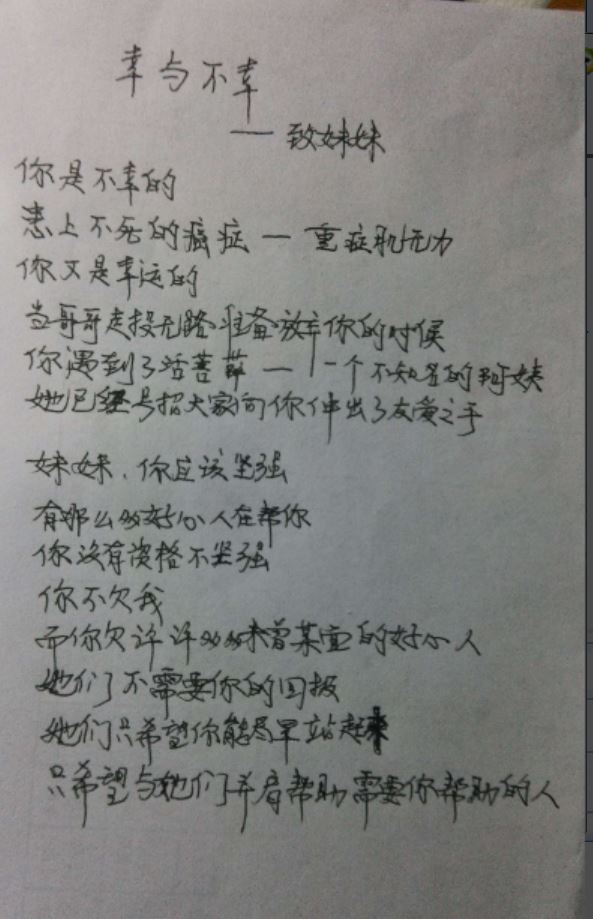 幸与不幸
——致妹妹
你是不幸的
患上不死的癌症—重症肌无力
你又是幸运的
当哥哥走投无路准备放弃你的时候
你遇到了活菩萨—一个不知名的阿姨
她已经号招大家向你伸出了友爱之手
妹妹,你应该坚强
有那么多好心人在帮你
你没有资格不坚强
你不欠我
而你欠许许多多未曾某宜的好心人
她们不需要你的回报
她们只希望你能尽早站起来
只希望与她们并肩帮助需要你帮助的人